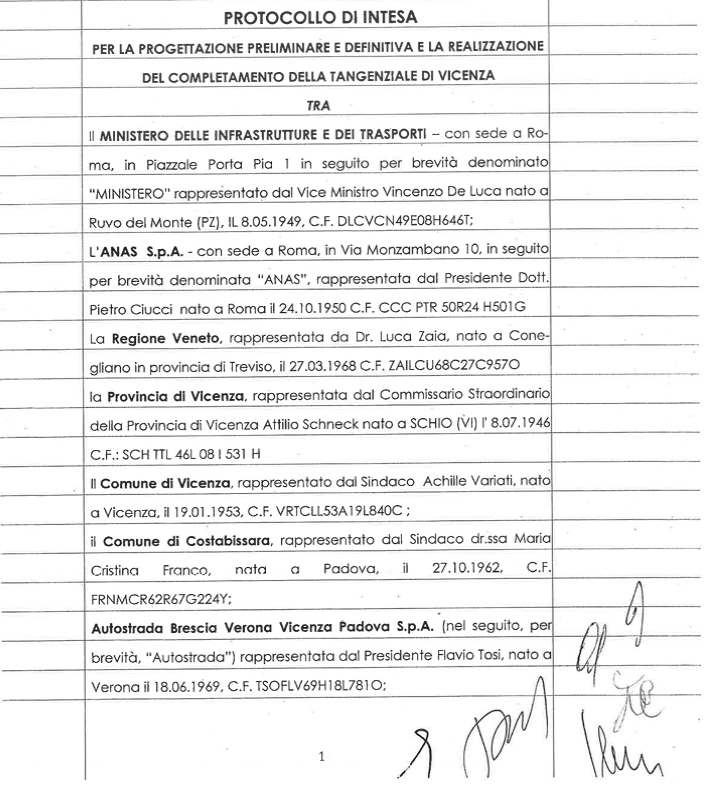 PROTOCOLLO DI INTESA
PER LA PROGETTAZIONE PRELIMINARE E DEFINITIVA E LA REALIZZAZIONE
DEL COMPLETAMENTO DELLA TANGENZIALE DI VICENZA
TRA
Il MINISTERO DELLE INFRASTRUTTURE E DEI TRASPORTI – con sede a Ro-
ma, in Piazzale Porta Pia 1 in seguito per brevità denominato
“MINISTERO” rappresentato dal Vice Ministro Vincenzo De Luca nato a
Ruvo del Monte (PZ), IL 8.05.1949, C.F. DLCVCN49E08H646T;
L'ANAS S.p.A. - con sede a Roma, in Via Monzambano 10, in seguito
per brevità denominata “ANAS”, rappresentata dal Presidente Dott.
Pietro Ciucci nato a Roma il 24.10.1950 C.F. CCC PTR 50R24 H501G
La Regione Veneto, rappresentata da Dr. Luca Zaia, nato a Cone-
gliano in provincia di Treviso, il 27.03.1968 C.F. ZAILCU68C27C957O
la Provincia di Vicenza, rappresentata dal Commissario Straordinario
della Provincia di Vicenza Attilio Schneck nato a SCHIO (VI) l' 8.07.1946
C.F.: SCH TTL 46L 08 I 531 H
Il Comune di Vicenza, rappresentato dal Sindaco Achille Variati, nato
a Vicenza, il 19.01.1953, C.F. VRTCLL53A19L840C ;
il Comune di Costabissara, rappresentato dal Sindaco dr.ssa Maria
Cristina Franco, nata a Padova, il 27.10.1962, C.F.
FRNMCR62R67G224Y;
Autostrada Brescia Verona Vicenza Padova S.p.A. (nel seguito, per
brevità, “Autostrada”) rappresentata dal Presidente Flavio Tosi, nato a
Verona il 18.06.1969, C.F. TSOFLV69H18L781O;
1